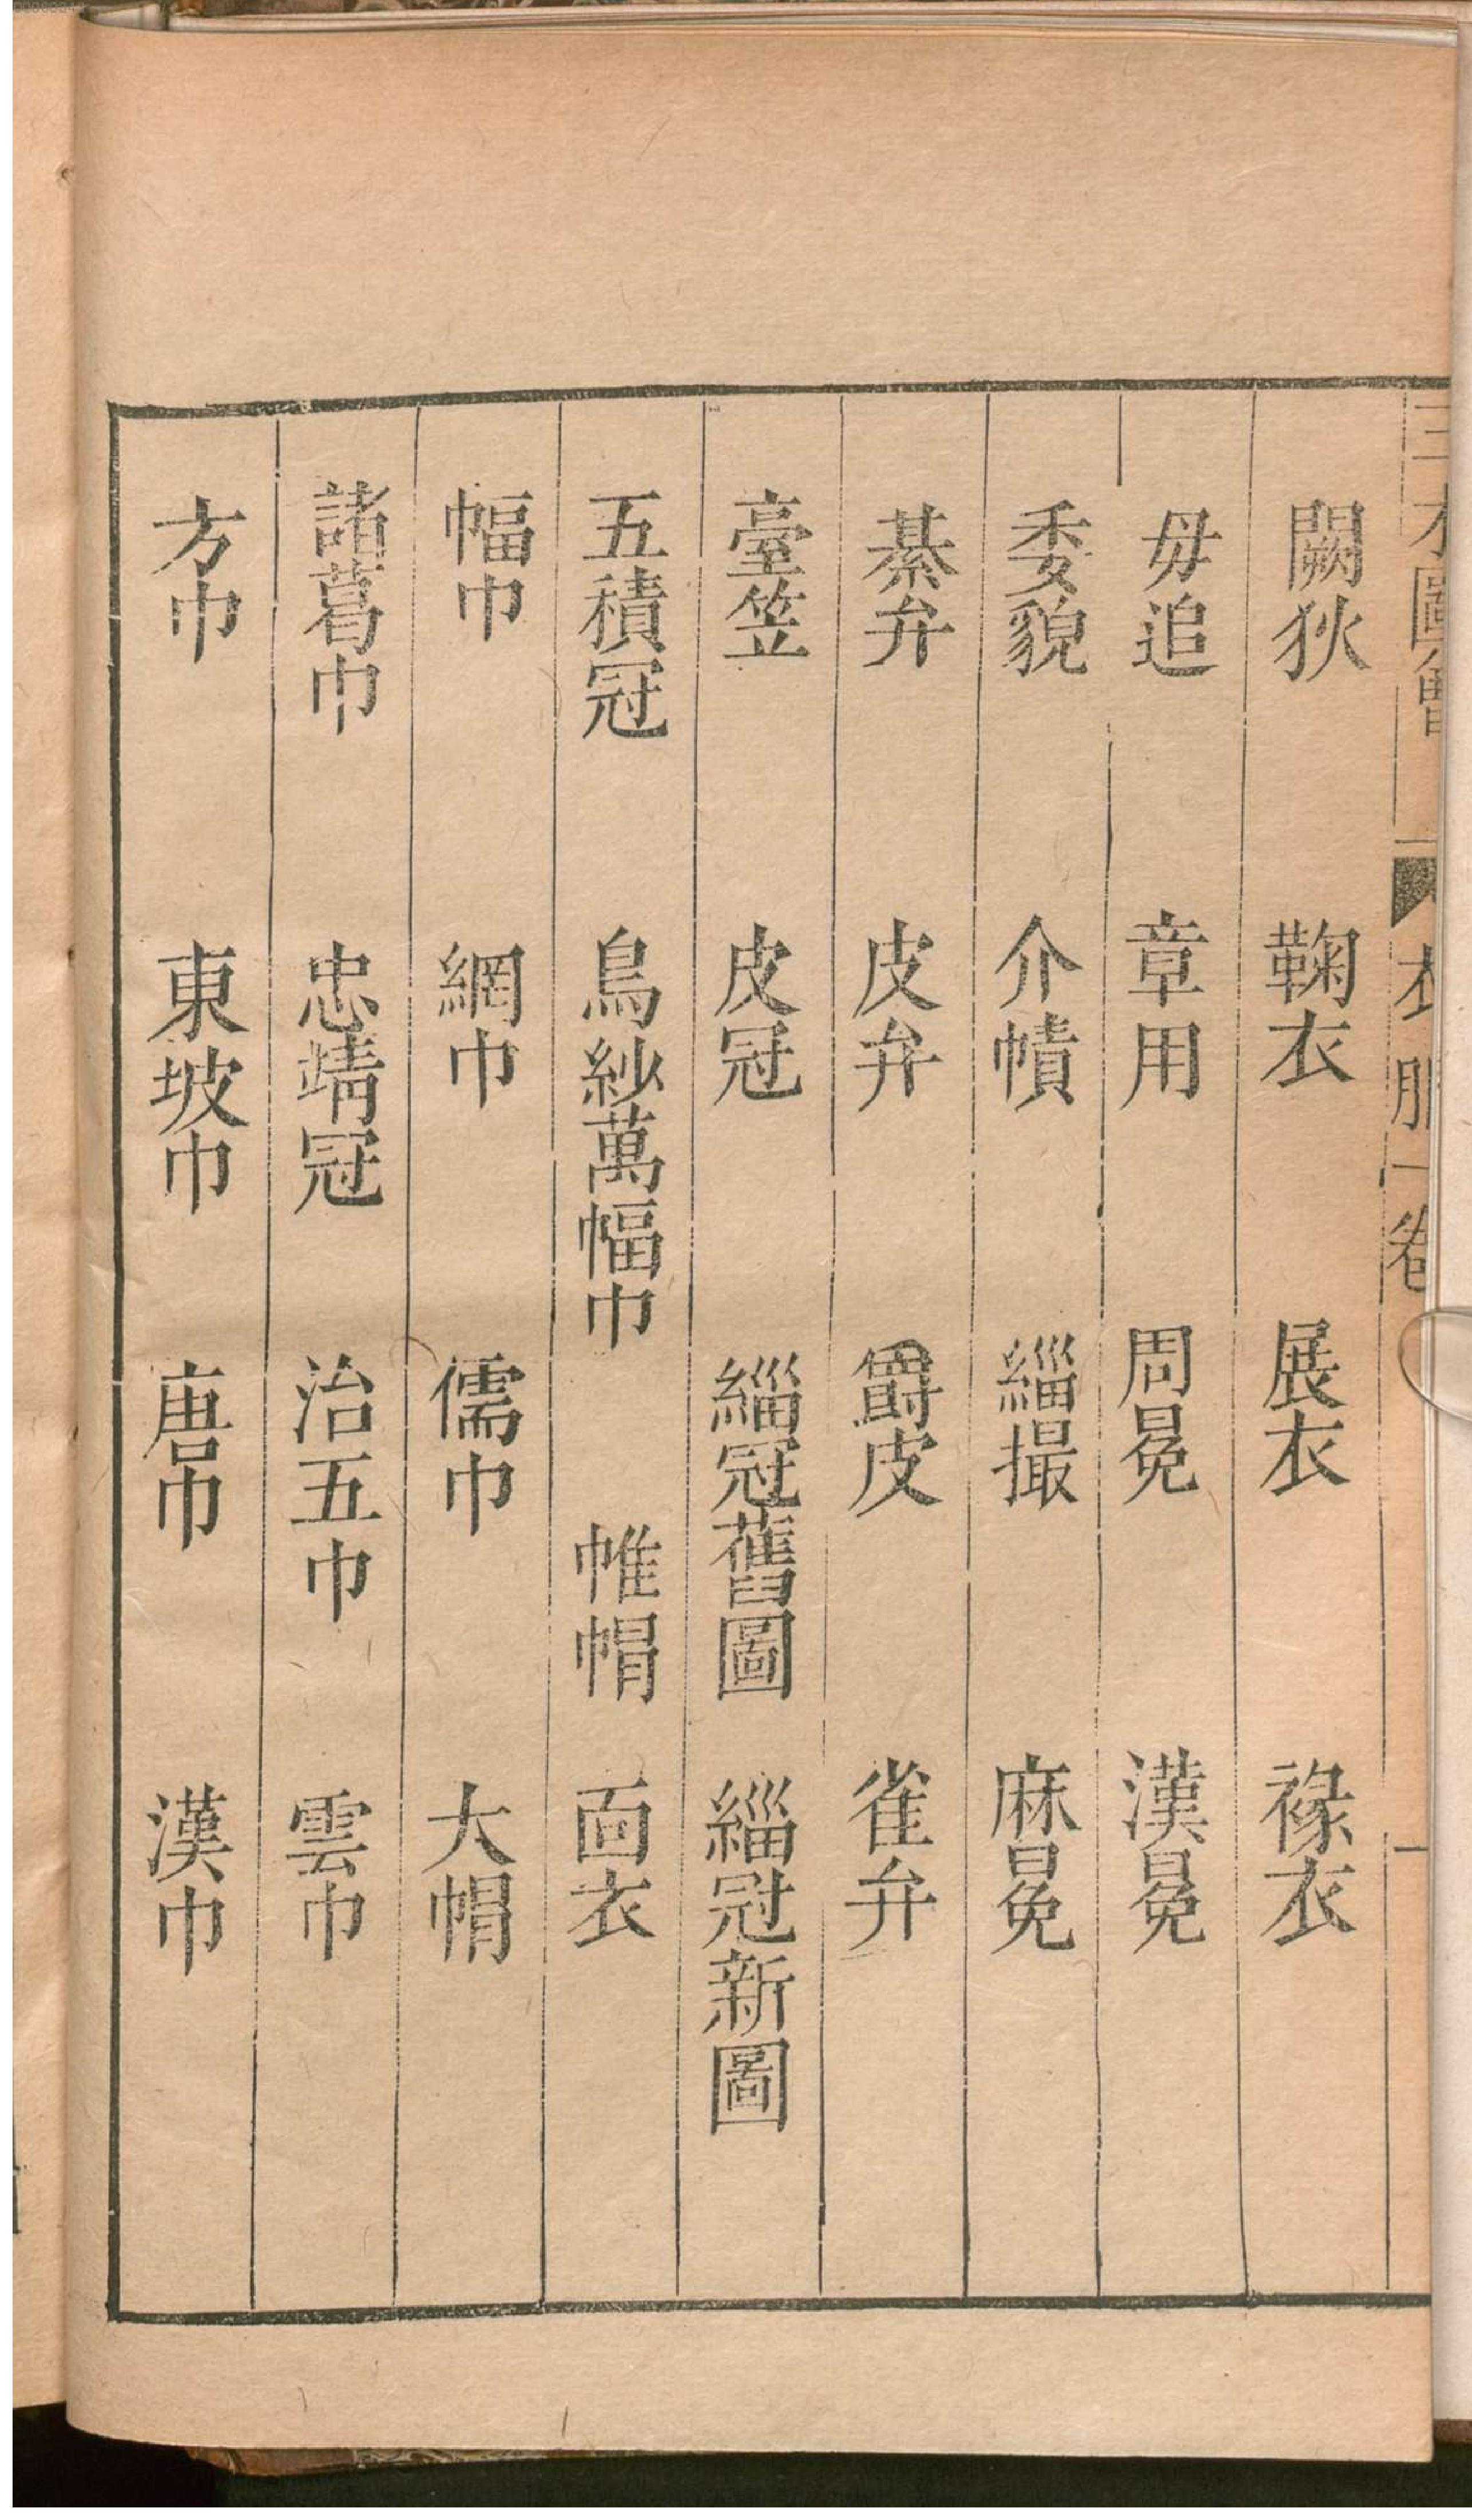 三才圖會 衣服一卷 一
闕狄 鞠衣 展衣 褖衣
毋追 章甫 周冕 漢冕
委貌 介幘 緇撮 麻冕
綦弁 皮弁 爵皮 雀弁
臺笠 皮冠 緇冠舊圖 緇冠新圖
五積冠 烏紗萬幅巾 帷帽 面衣
幅巾 網巾 儒巾 大帽
諸葛巾 忠靖冠 治五巾 雲巾
方巾 東坡巾 唐巾 漢巾